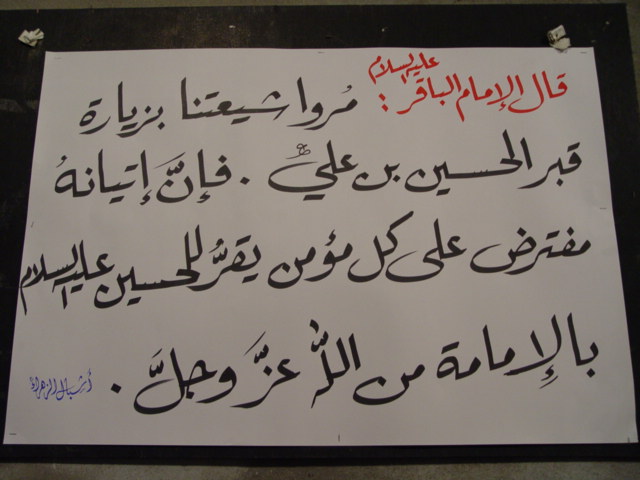 قال الإمام الباقر عليه السلام : مُروا شيعتنا بزيارة
قبر الحسين بن عليّ . فإنَّ إتيانهُ
مفترض على كل مؤمن يقرُّ للحسين عليه السلام
بالإمامة من اللّٰه عزَّ وجلَّ .
أشبال الزهراء